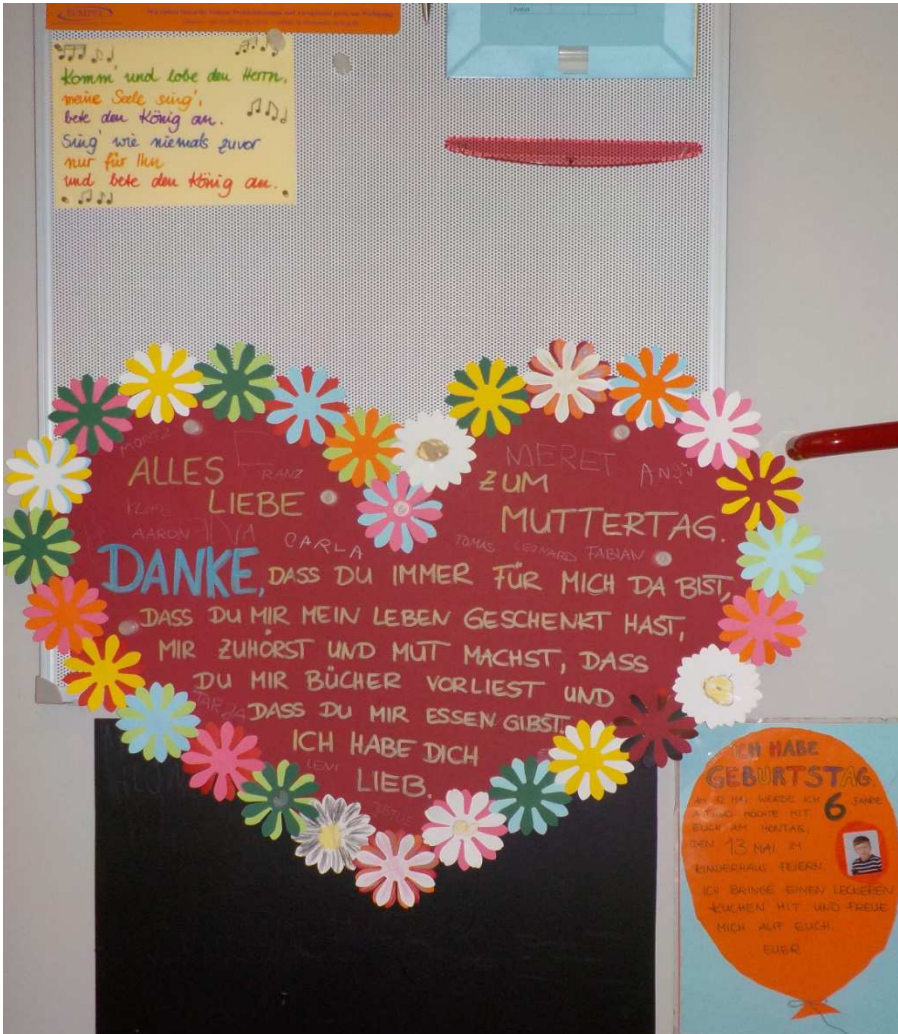 Komm' und lobe den Herrn,
meine Seele sing',
bete den König an.
Sing' wie niemals zuvor
nur für Ihn
und bete den König an.
MERET
ALLES
ZUM
LIEBE
MUTTERTAG.
AARON
CARLA
TOMAS
LEONARD
FABIAN
DANKE, DASS DU IMMER FÜR MICH DA BIST,
DASS DU MIR MEIN LEBEN GESCHENKT HAST,
MIR ZUHÖRST UND MUT MACHST, DASS
DU MIR BÜCHER VORLIEST UND
DASS DU MIR ESSEN GIBST.
ICH HABE DICH
LENI
LIEB.
ICH HABE
GEBURTSTAG.
AM 12. MAI WURDE ICH 6 JAHRE
MÖCHTE MIT
EUCH AM MONTAG,
DEN 13 MAI IM
KINDERHAUS FEIERN.
ICH BRINGE EINEN LECKEREN
KUCHEN MIT UND FREUE
MICH AUF EUCH.
EUER